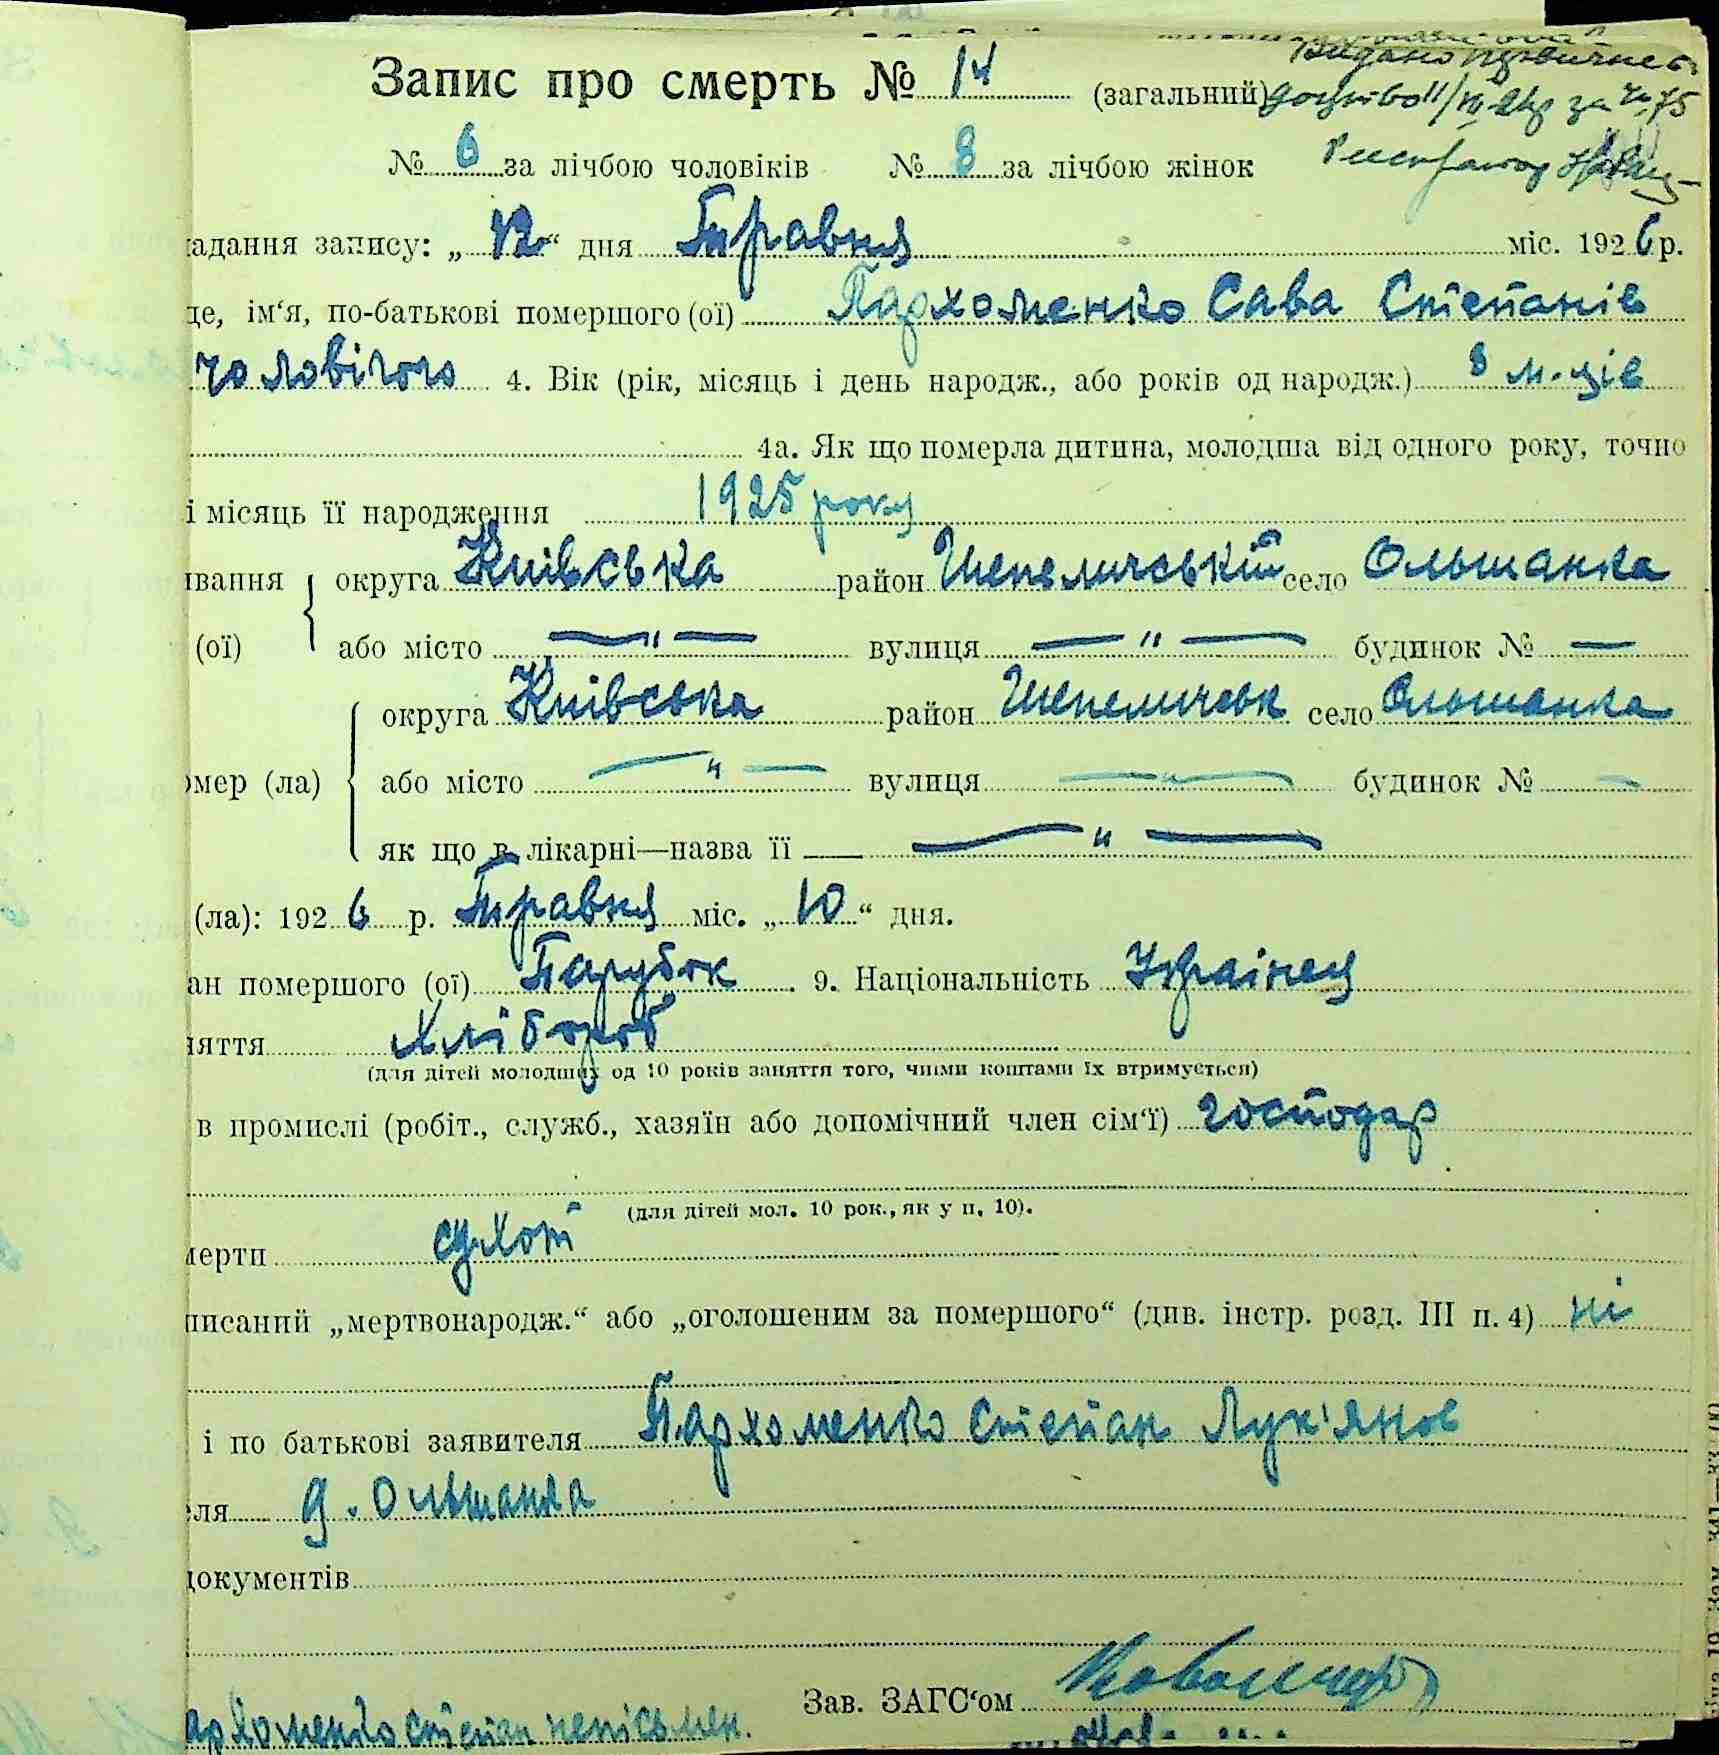 Запис про смерть № 14 (загальний)
№ 6 за лічбою чоловіків № 8 за лічбою жінок
адання запису: „12“ дня Травня міс. 1926 р.
це, ім‘я, по-батькові помершого (ої) Пархоменко Сава Степанів
чоловічого 4. Вік (рік, місяць і день народж., або років од народж.) 8 м-ців
4а. Як що померла дитина, молодша від одного року, точно
і місяць її народження 1925 року
ивання округа Київська район Шепеличський село Ольшанка
(ої) або місто — " — вулиця — " — будинок № —
округа Київська район Шепеличськ село Ольшанка
омер (ла) або місто — " — вулиця — " — будинок № —
як що в лікарні—назва її — " —
(ла): 1926 р. Травня міс. „10“ дня.
ан помершого (ої) Парубок. 9. Національність Украінец
няття Хлібороб
(для дітей молодших од 10 років заняття того, чиїми коштами їх втримується)
в промислі (робіт., служб., хазяїн або допомічний член сім‘ї) господар
(для дітей мол. 10 рок., як у п. 10).
мерти сухот
писаний „мертвонародж.“ або „оголошеним за помершого“ (див. інстр. розд. III п. 4) ні
і по батькові заявителя Пархоменко Степан Лук'янов
еля д. Ольшанка
документів
Зав. ЗАГС‘ом
архоменко степан неписьмен.